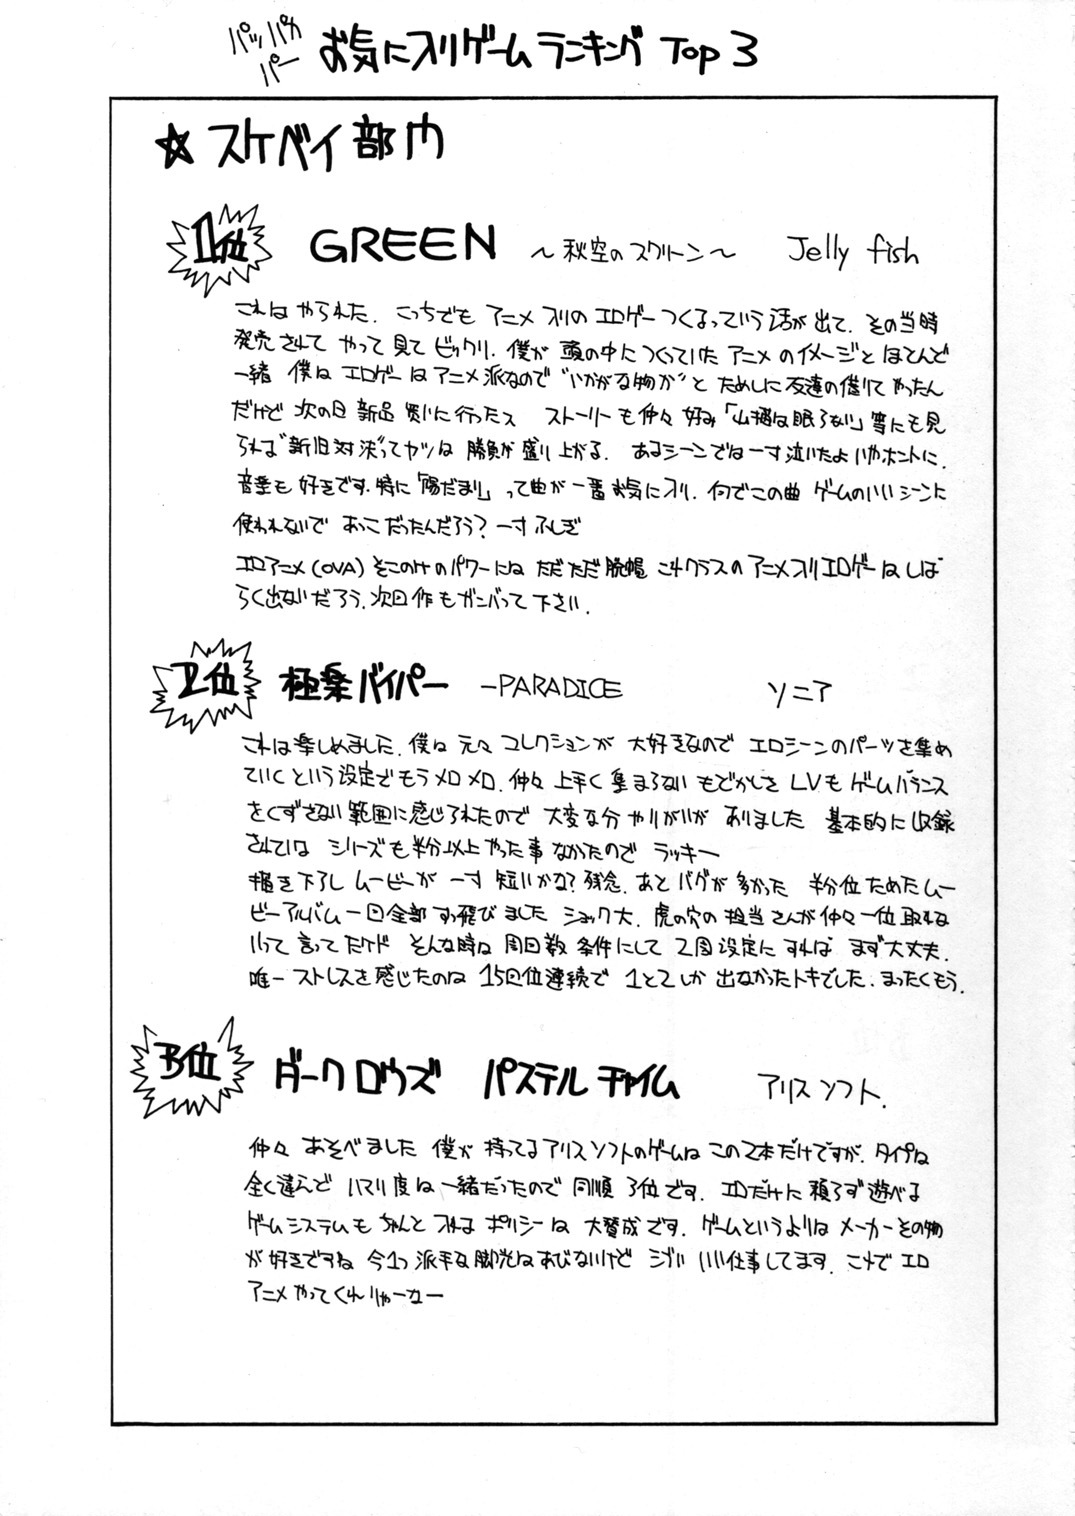 パッパカパー お気に入りゲームランキング Top 3
☆ スケベイ部門
1位 GREEN ～秋空のスクリーン～ Jelly fish
これは やられた. こっちでも アニメ入りの エロゲー つくるっていう 話が 出て. その当時
発売されて やって 見て ビックリ. 僕が 頭の中に つくっていた アニメ のイメージと ほとんど
一緒 僕は エロゲーは アニメ派なので "いかがな物か" と ためしに 友達の 借りて やったん
だけど 次の日 新品 買いに 行ったス ストーリーも 仲々 好み 「山猫は眠らない」 等にも 見
られば "新旧対決" ってヤツは 勝負が 盛り上がる. あるシーンでは 一寸 泣いたよ いやホントに.
音楽も 好きです. 特に 「陽だまり」 って曲が 一番 お気に入り. 何でこの曲 ゲームのいいシーンに
使われないで おっこだったんだろう? 一寸 ふしぎ
エロアニメ (OVA) そこのけ のパワーには ただただ 脱帽 これクラスの アニメ入り エロゲーは しば
らく出ないだろう. 次回作も ガンバって 下さい.
2位 極楽バイパー -PARADICE ソニア
これは楽しめました. 僕は 元々 コレクションが 大好きなので エロシーンのパーツを集め
ていくという 設定で もう メロメロ. 仲々 上手く 集まらない もどかしさ LVも ゲームバランス
をくずさない 範囲に 感じられたので 大変な分 やりがいが ありました 基本的に 収録
されている シリーズも 半分以上 やった事 なかったので ラッキー
描き下ろし ムービーが 一寸 短いかな? 残念. あと バグが 多かった 半分位 ためた ムー
ビーアルバム 一回全部 すっ飛びました ショック大. 虎の穴の 担当さんが 仲々 一位 取れな
いって 言ってたけど そんな時は 周回数 条件にして 2周設定に すれば まず大丈夫.
唯一 ストレスを感じたのは 15回位連続で 1と2しか 出なかったトキでした. まったくもう.
3位 ダークロウズ パステルチャイム アリスソフト.
仲々 あそべました 僕が 持ってる アリスソフトのゲームは この2本だけですが. タイプは
全く違えど ハマリ度は 一緒だったので 同順 3位です. エロだけに 頼らず 遊べる
ゲームシステムも ちゃんと 入れる ポリシーは 大賛成です. ゲームというよりは メーカー その物
が 好きですね 今1つ 派手な 脚光は あびないけど シブい いい仕事してます. これで エロ
アニメ やってくれりゃーなー